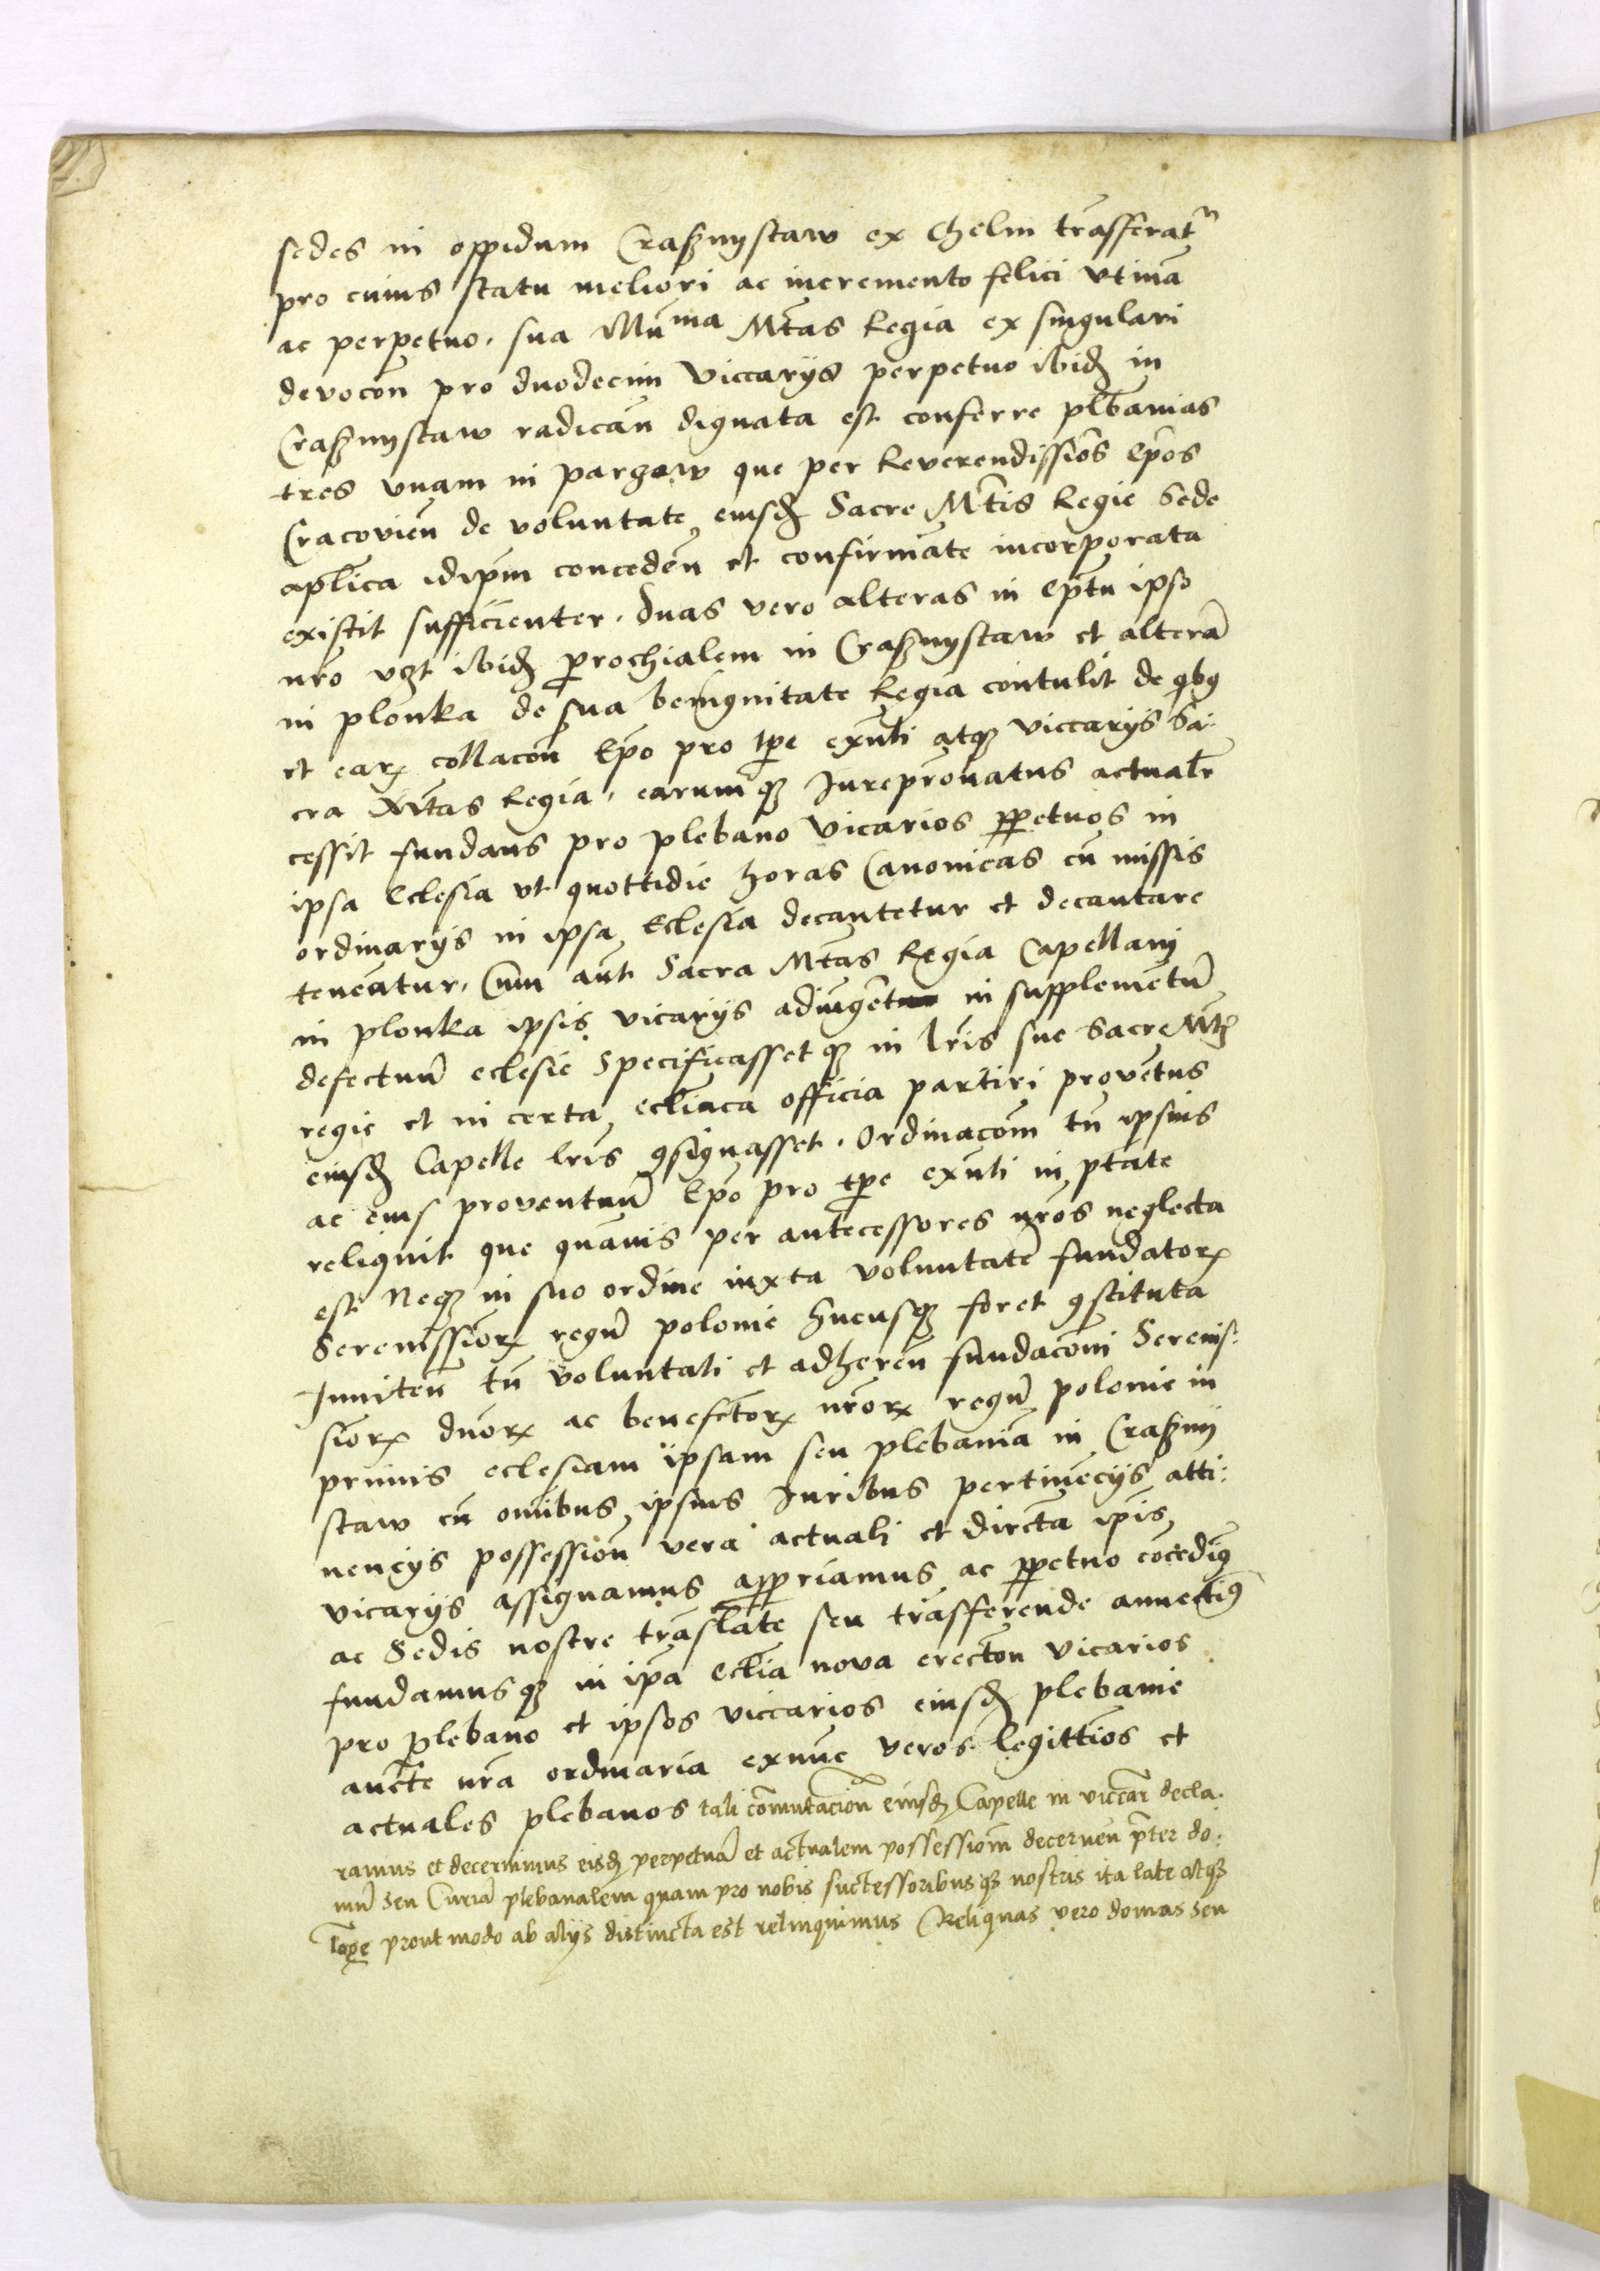 sedes in oppidum Craßnÿstaw ex Chelm trãsferatr
pro cuius statu meliori ac incremento felici vtinã
ac perpetuo. sua Illuma Mtãs Regia ex singulari
devocõn pro duodecim Viccarÿs perpetuo ibidz in
Craßnÿstaw radicañ dignata est conferre plb̃anias
tres vnam in parzow que per Reverendissiõs Ep̃os
Cracovieñ de voluntate eiusdz Sacre Mt̃is Regie Sede
aplĩca idip̃m concedeñ et confirmãte incorporata
existit sufficienter. Duas vero alteras in Ep̃tu ipso
nr̃o vzt ibidz ꝑrochialem in Craßnÿstaw et alterã
in plonka de sua benignitate Regia contulit de qbꝯ
et earꝝ collacõn Ep̃o pro tp̃e exñti atqꝫ viccarÿs Sa:
cra Mt̃as Regia. earumqꝫ Iurepr̃onatus actualr̃
cessit fundans pro plebano Vicarios ꝑpetuos in
ipsa Eclesia vt quottidie horas Canonicas cũ missis
ordinarÿs in ipsa Eclesia decantetur et decantare
teneãtur. Cum aũt Sacra Mt̃as Regia Capellanÿ
in plonka ipsis vicarÿs adiũgẽt in supplemẽtũ
defectuũ eclesie Specificassetqꝫ in lr̃is sue Sacre Mt̃
regie et in certa eclĩaca officia partiri provẽtus
eiusdz Capelle lr̃is ꝯsignasset. Ordinacõm tñ ipsius
ac eius proventuũ Ep̃o pro tp̃e exñti in ptãte
reliquit que quãuis per antecessores nr̃os neglecta
est Neqꝫ in suo ordine iuxta voluntatẽ fundatorꝝ
Serenissiorꝝ regũ polonie hucusqꝫ foret ꝯstituta
Inniteñ tñ voluntati et adhereñ fundacõni Serenis:
siorꝝ dñorꝝ ac benefc̃torꝝ nr̃orꝝ regũ polonie in
primis eclesiam ipsam seu plebaniã in Craßnÿ
staw cũ omĩbus ipsius Iuribus pertinẽcÿs atti:
nencÿs possessioñ vera actuali et dirc̃ta ip̃is
vicarÿs assignamus apꝓriamus ac ꝑpetuo cõcedimꝯ
ac Sedis nostre trãslate seu trãsferende annectimꝯ
fundamusqꝫ in ip̃a Eclĩa nova erectõn Vicarios
pro plebano et ipsos viccarios eiusdz plebanie
auc̃te nr̃a ordinaria exnũc veros legittiõs et
actuales plebanos tali cõmutacioñ eiusdz Capelle in viccar̃ decla:
ramus et decernimus eisdz perpetuã et actualem possessionm̃ decerneñ pr̃ter do:
mũ seu Curiã plebanalem quam pro nobis suctessoribusqꝫ nostris ita late atqꝫ
lõge prout modo ab alÿs distincta est relinquimus Reliquas vero domos seu